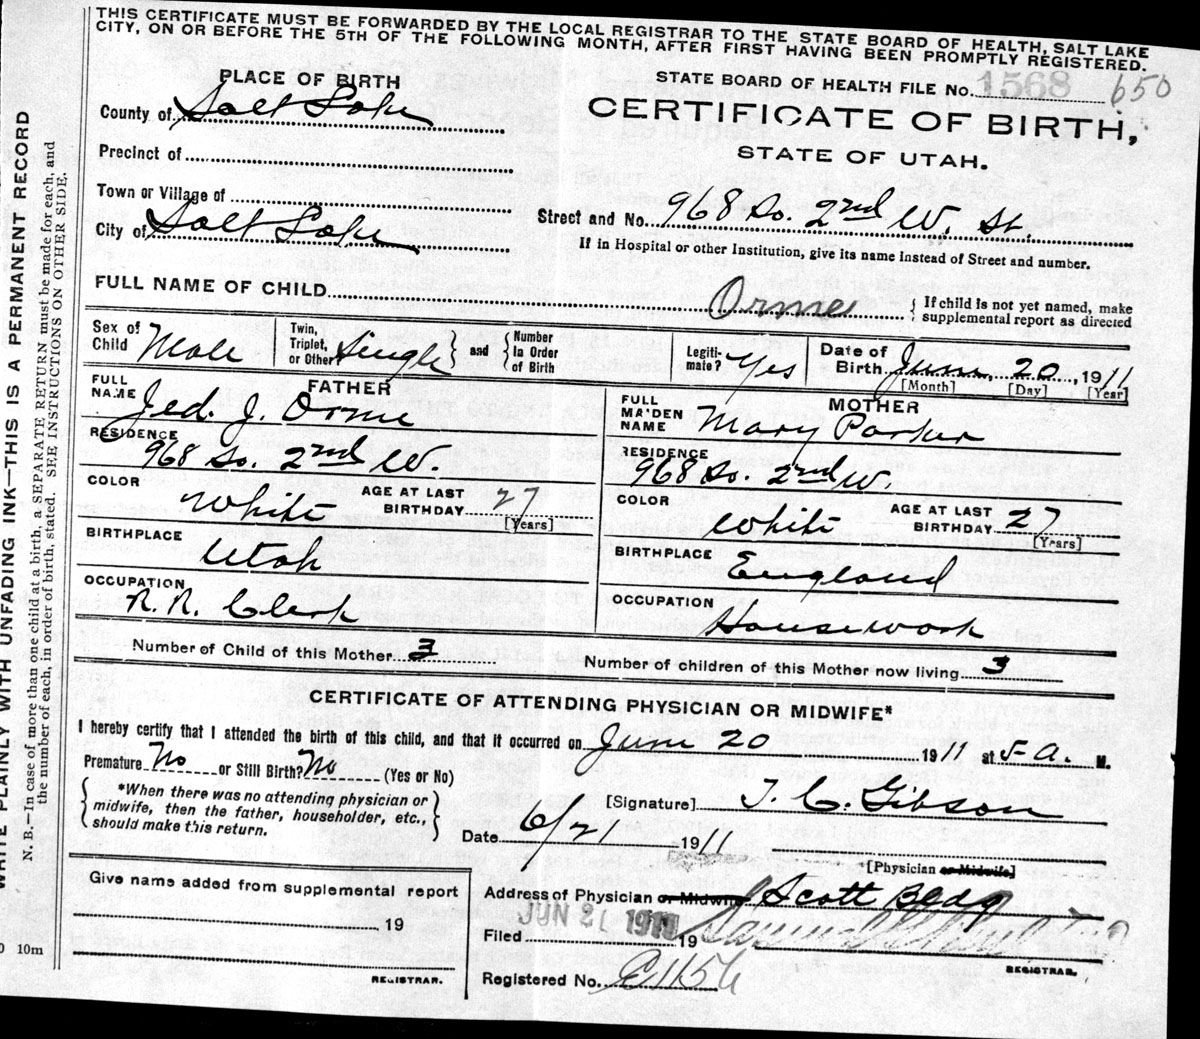 THIS CERTIFICATE MUST BE FORWARDED BY THE LOCAL REGISTRAR TO THE STATE BOARD OF HEALTH, SALT LAKE
CITY, ON OR BEFORE THE 5TH OF THE FOLLOWING MONTH, AFTER FIRST HAVING BEEN PROMPTLY REGISTERED.
PLACE OF BIRTH
STATE BOARD OF HEALTH FILE No. 1568 650
County of Salt Lake
CERTIFICATE OF BIRTH,
STATE OF UTAH.
Precinct of
Town or Village of
City of Salt Lake
Street and No. 968 So. 2nd W. St.
If in Hospital or other Institution, give its name instead of Street and number.
FULL NAME OF CHILD Orme
If child is not yet named, make
supplemental report as directed
Sex of
Child Male
Twin,
Triplet,
or Other Single
and
Number
in Order
of Birth
Legiti-
mate? Yes
Date of
Birth June 20, 1911
[Month] [Day] [Year]
FATHER
FULL
NAME Jed. J. Orme
RESIDENCE
968 So. 2nd W.
COLOR White
AGE AT LAST
BIRTHDAY 27
[Years]
BIRTHPLACE
Utah
OCCUPATION
R. R. Clerk
MOTHER
FULL
MAIDEN
NAME Mary Parker
RESIDENCE
968 So. 2nd W.
COLOR White
AGE AT LAST
BIRTHDAY 27
[Years]
BIRTHPLACE
England
OCCUPATION
Housework
Number of Child of this Mother 3
Number of children of this Mother now living 3
CERTIFICATE OF ATTENDING PHYSICIAN OR MIDWIFE*
I hereby certify that I attended the birth of this child, and that it occurred on June 20 1911 at 5 A. M.
Premature No or Still Birth? No (Yes or No)
*When there was no attending physician or
midwife, then the father, householder, etc.,
should make this return.
[Signature] J. C. Gibson
Date 6/21 1911
[Physician or Midwife]
Give name added from supplemental report
19
REGISTRAR.
Address of Physician or Midwife Scott Bldg
JUN 21 1911
Filed 19
REGISTRAR.
Registered No. C1156
WRITE PLAINLY WITH UNFADING INK—THIS IS A PERMANENT RECORD
N. B.—In case of more than one child at a birth, a SEPARATE RETURN must be made for each, and
the number of each, in order of birth, stated. SEE INSTRUCTIONS ON OTHER SIDE.
10m